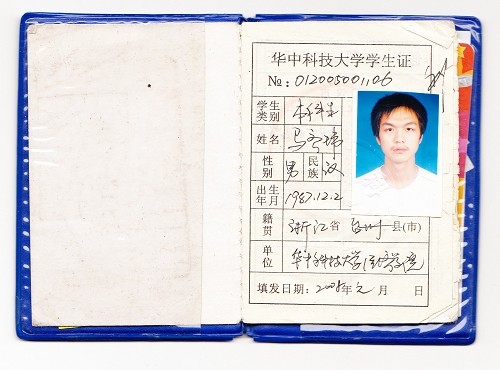 华中科技大学学生证
№:012005001106
学生类别 本科生
姓名 马
性别 男 民族 汉
出生年月 1987.12.2
籍贯 浙江省 台州县(市)
单位 华中科技大学 学院
填发日期: 2005年 月 日